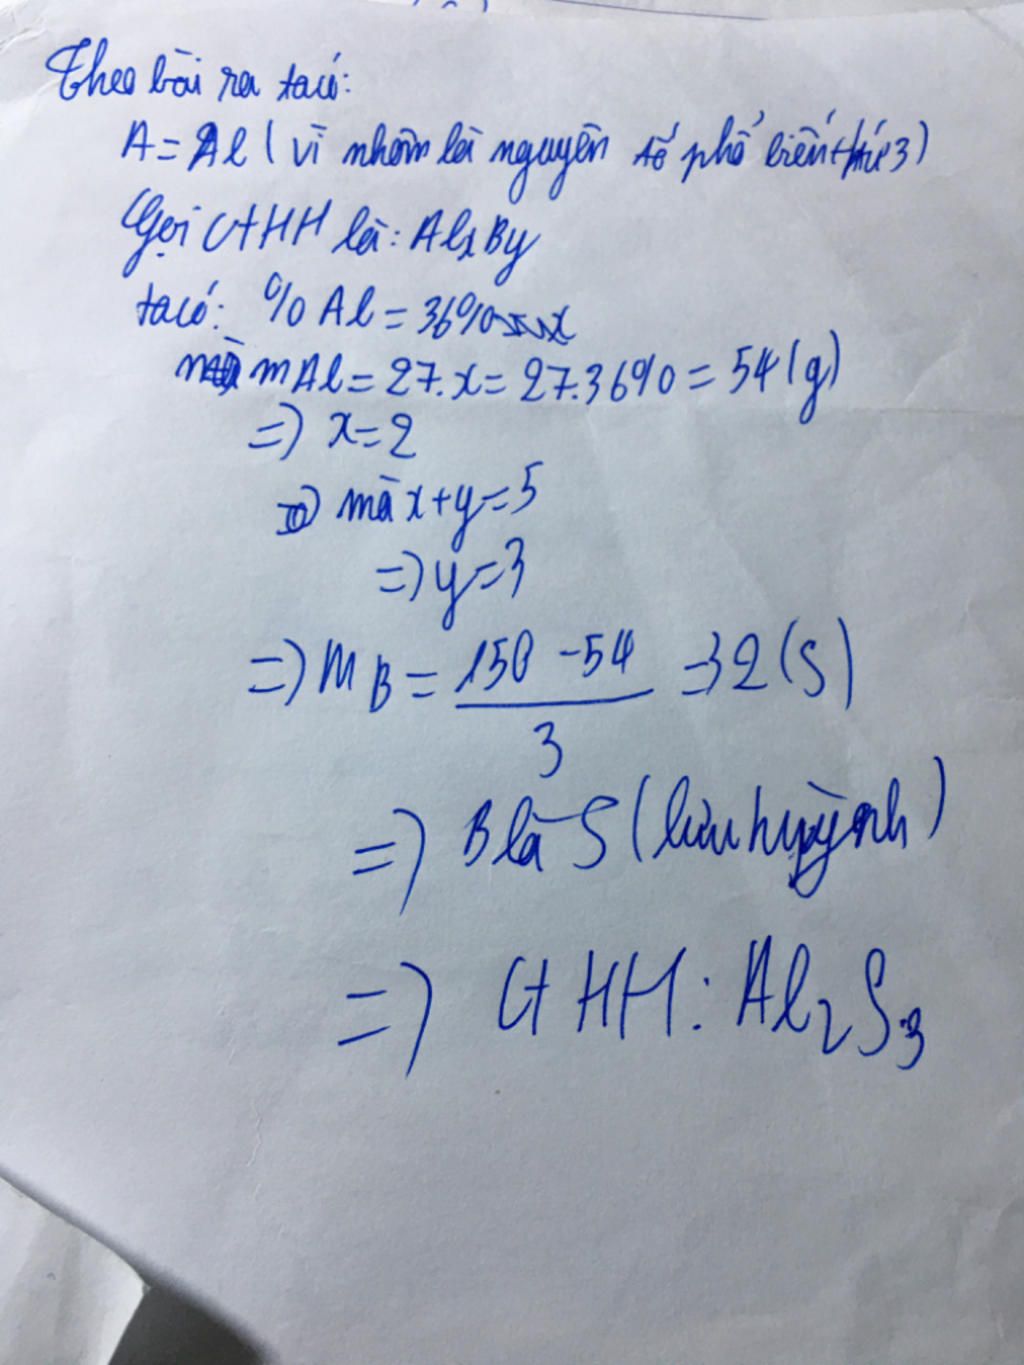 Theo bài ra ta có:
A = Al (vì nhôm là nguyên tố phổ biến thứ 3)
Gọi CTHH là: AlxBy
ta có: %Al = 36%
mAl = 27.x = 27.36% = 54 (g)
=> x = 2
mà x + y = 5
=> y = 3
=> MB = 150 - 54 / 3 = 32 (S)
=> B là S (lưu huỳnh)
=> CTHH: Al2S3